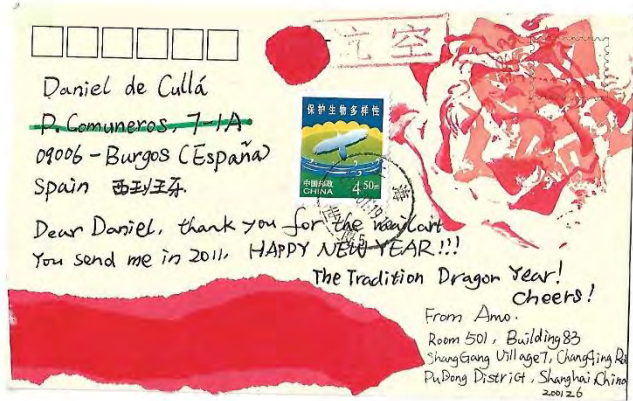 航空
Daniel de Cullá
P. Comuneros, 7-1A
09006 - Burgos (España)
Spain 西班牙
保护生物多样性
中国邮政
CHINA
4.50元
Dear Daniel, thank you for the mailart
You send me in 2011, HAPPY NEW YEAR!!!
The Tradition Dragon Year!
Cheers!
From Amo.
Room 501, Building 83
ShangGang Village 7, ChangQing Rd
PuDong District, Shanghai, China
200126